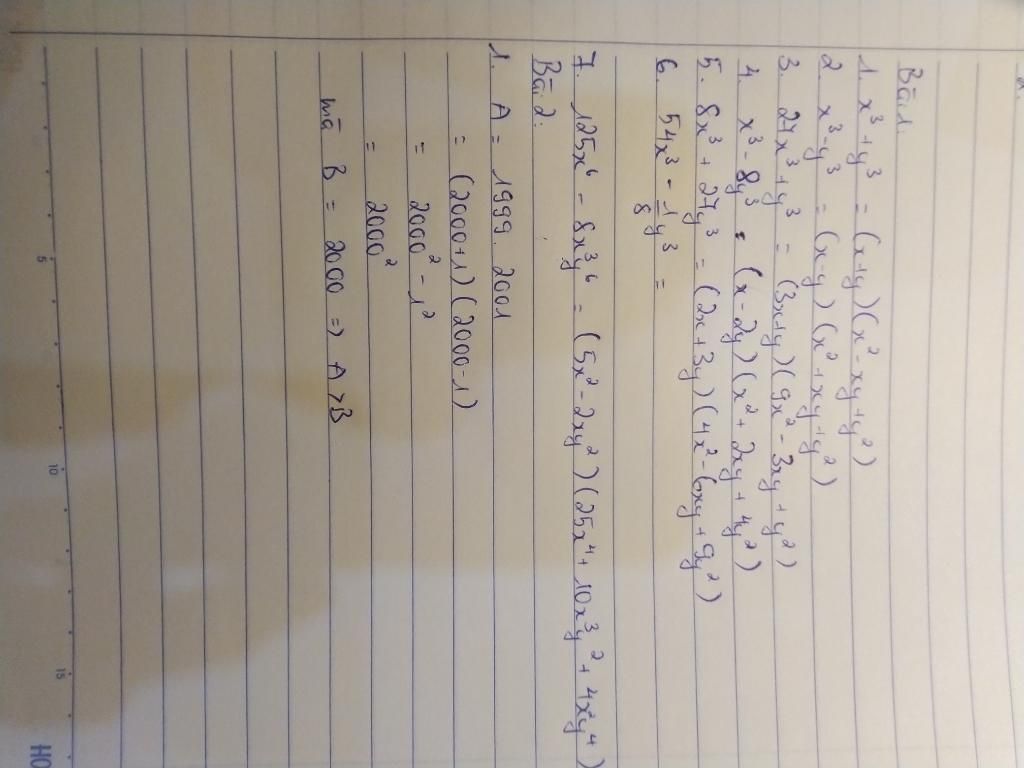 2.
Bài 1.
1. x³ + y³ = (x+y)(x² - xy + y²)
2. x³ - y³ = (x-y)(x² + xy + y²)
3. 27x³ + y³ = (3x+y)(9x² - 3xy + y²)
4. x³ - 8y³ = (x - 2y)(x² + 2xy + 4y²)
5. 8x³ + 27y³ = (2x + 3y)(4x² - 6xy + 9y²)
6. 54x³ - 1/8 y³ =
7. 125x⁶ - 8x³y⁶ = (5x² - 2xy²)(25x⁴ + 10x³y² + 4x²y⁴)
Bài 2.
1. A = 1999. 2001
= (2000+1)(2000-1)
= 2000² - 1²
= 2000²
mà B = 2000 => A > B
5 10 15
HO